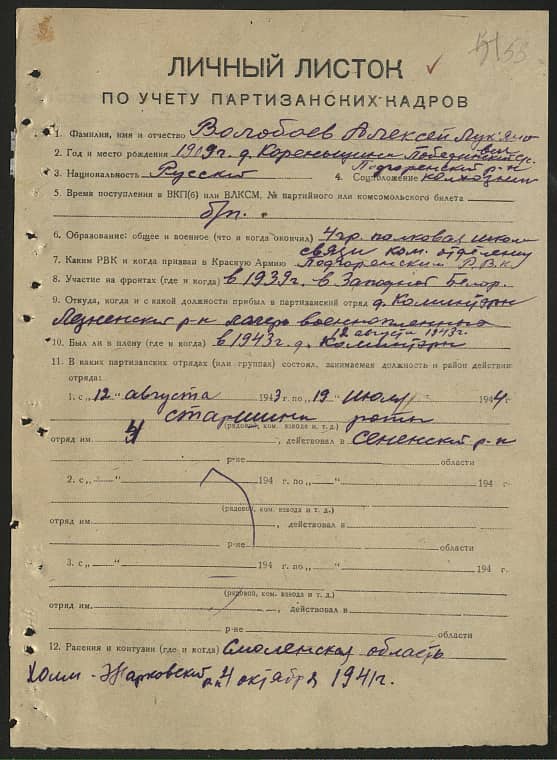 53
ЛИЧНЫЙ ЛИСТОК
ПО УЧЕТУ ПАРТИЗАНСКИХ КАДРОВ
1. Фамилия, имя и отчество Волобоев Алексей Лукьяно
вич
2. Год и место рождения 1909 г. д. Кореньщина
Подгоренский р-н
3. Национальность Русский 4. Соцположение колхозник
5. Время поступления в ВКП(б) или ВЛКСМ, № партийного или комсомольского билета
б/п.
6. Образование: общее и военное (что и когда окончил) 4 гр. полковая школа
связи ком. отделения
7. Каким РВК и когда призван в Красную Армию Подгоренский Р.В.К
8. Участие на фронтах (где и когда) в 1939 г. в Западной Белор.
9. Откуда, когда и с какой должности прибыл в партизанский отряд д. Коминтерн
Лезненский р-н лагерь военнопленных
12 августа 1943 г.
10. Был ли в плену (где и когда) в 1943 г. д. Коминтерн
11. В каких партизанских отрядах (или группах) состоял, занимаемая должность и район действии
отряда:
1. с „12" августа 1943 г. по „19" июля 1944 г.
старшина роты
(рядовой, ком. взвода и т. д.)
отряд им. 4, действовал в Сененский р-н
р-не области
2. с „ " 194 г. по „ " 194 г.
(рядовой, ком. взвода и т. д.)
отряд им. , действовал в
р-не области
3. с „ " 194 г. по „ " 194 г.
(рядовой, ком. взвода и т. д.)
отряд им. , действовал в
р-не области
12. Ранения и контузии (где и когда) Смоленская область
Холм-Жарковский р-н 4 октября 1941 г.